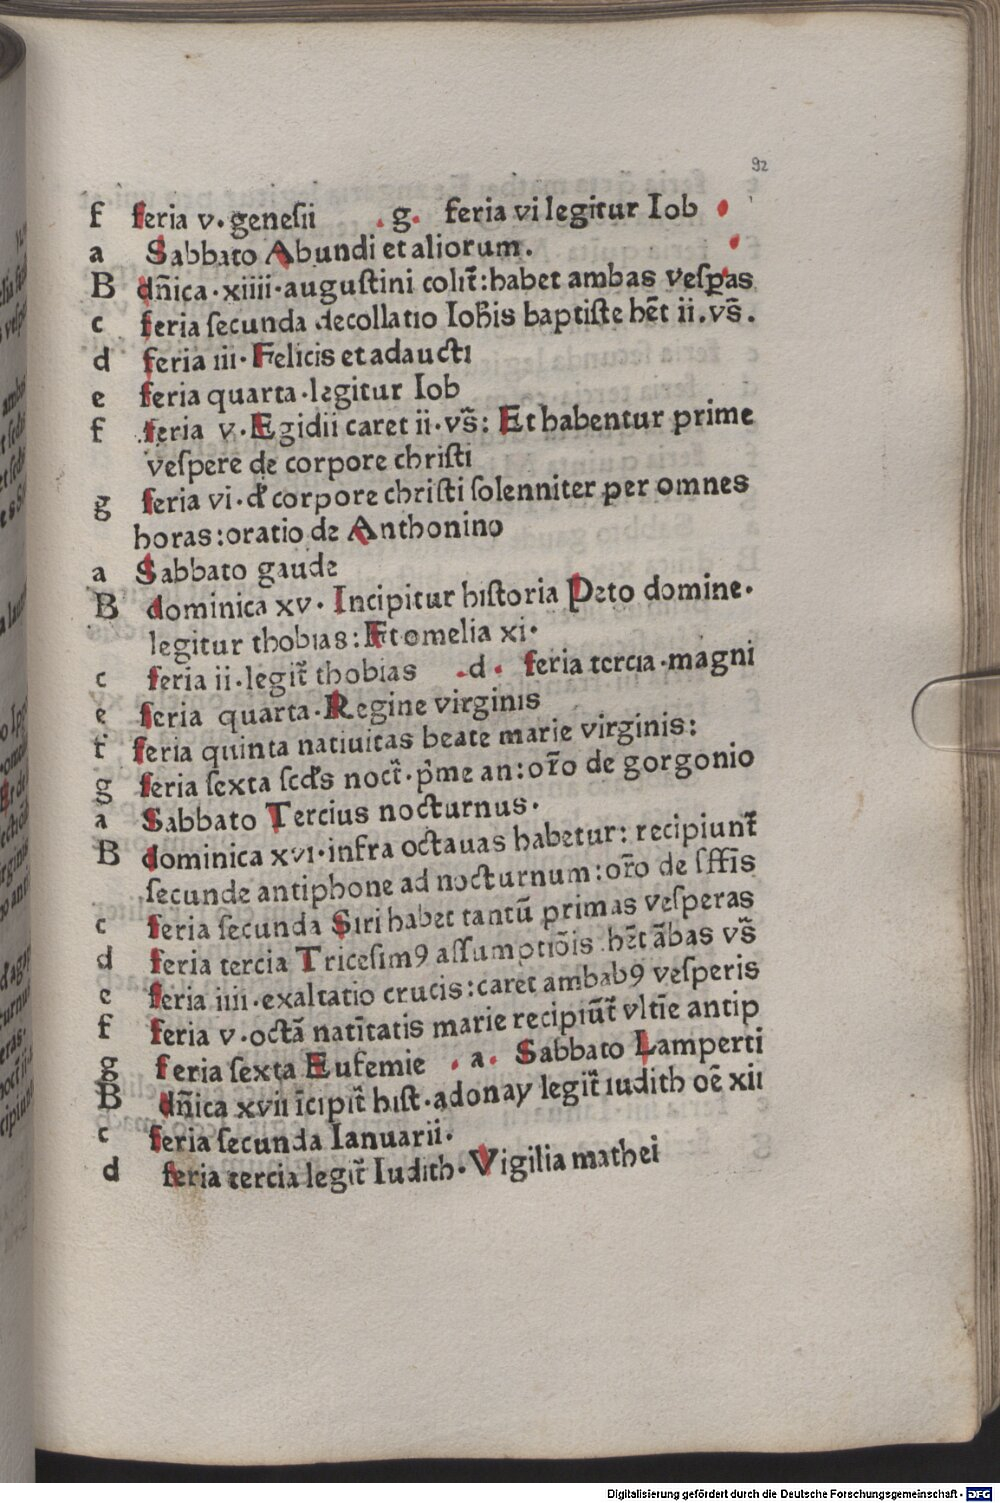 92
f feria v. genesii .g. feria vi legitur Iob
a Sabbato Abundi et aliorum.
B dn̄ica .xiiii. augustini colit̄: habet ambas vesꝑas
c feria secunda decollatio Ioh̄is baptiste hēt ii. vs̄.
d feria iii. Felicis et adaucti
e feria quarta .legitur Iob
f feria v. Egidii caret ii. vs̄: Et habentur prime
vespere de corpore christi
g feria vi. d̄ corpore christi solenniter per omnes
horas: oratio de Anthonino
a Sabbato gaude
B dominica xv. Incipitur historia Peto domine.
legitur thobias: Et omelia xi.
c feria ii. legit̄ thobias .d. feria tercia .magni
e feria quarta. Regine virginis
f feria quinta natiuitas beate marie virginis:
g feria sexta scd̄s noct̄. p̄me an: or̄o de gorgonio
a Sabbato Tercius nocturnus.
B dominica xvi. infra octauas habetur: recipiunt̄
secunde antiphone ad nocturnum: or̄o de sff̄is
c feria secunda Siri habet tantū primas vesperas
d feria tercia Tricesimꝰ assumptiōis hēt ābas vs̄
e feria iiii. exaltatio crucis: caret ambabꝰ vesperis
f feria v. octā natīitatis marie recipiūt̄ vltīe antip
g feria sexta Eufemie .a. Sabbato Lamperti
B dn̄ica xvii īcipit̄ hist. adonay legit̄ iudith oē xii
c feria secunda Ianuarii.
d feria tercia legit̄ Iudith. Vigilia mathei
Digitalisierung gefördert durch die Deutsche Forschungsgemeinschaft - DFG